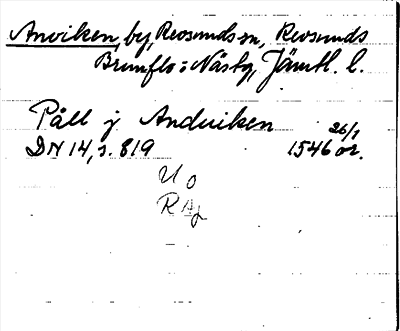 Anviken, by, Revsunds sn, Revsunds
Brunflo o Näsby, Jämtl. l.
Påll j Anduiken 26/1
DN 14, s. 819 1546 or.
U o